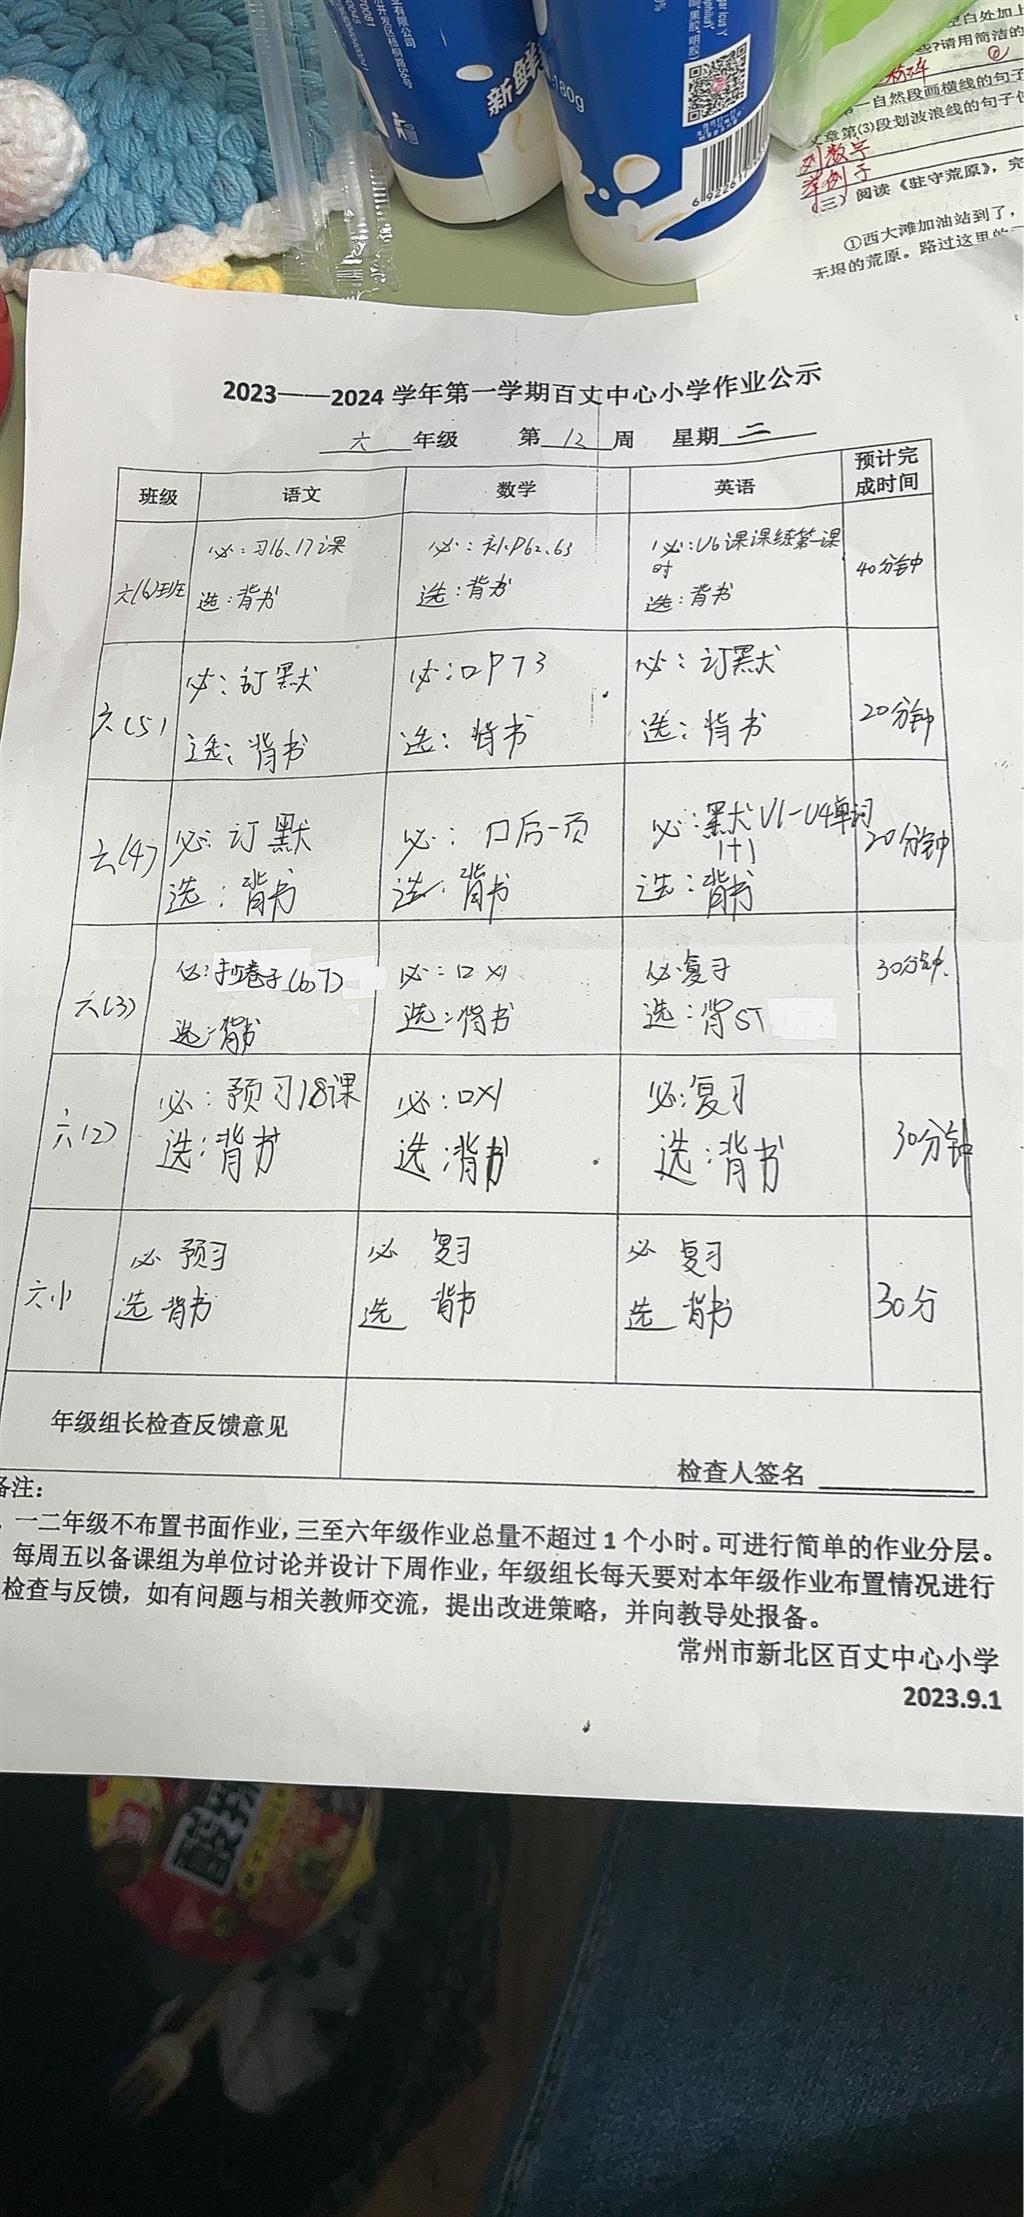 新鲜
180g
6922611
空白处加上
些?请用简洁的
一自然段画横线的句子
文章第(3)段划波浪线的句子
列数字
举例子
(三)阅读《驻守荒原》,完
①西大滩加油站到了,
无垠的荒原。路过这里的
2023——2024 学年第一学期百丈中心小学作业公示
六 年级 第 12 周 星期 二
班级 语文 数学 英语 预计完成时间
六(6)班 必:习16、17课 必:补P62、63 必:U6课课练第一课时 40分钟
选:背书 选:背书 选:背书
六(5) 必:订默 必:口P73 必:订默 20分钟
选:背书 选:背书 选:背书
六(4) 必:订默 必:口后一页 必:默U1-U4单词 1+1 20分钟
选:背书 选:背书 选:背书
六(3) 必:卷子(6,7) 必:口×1 必复习 30分钟
选:背书 选:背书 选:背ST
六(2) 必:预习18课 必:口×1 必:复习 30分钟
选:背书 选:背书 选:背书
六小 必 预习 必 复习 必 复习 30分
选 背书 选 背书 选 背书
年级组长检查反馈意见
检查人签名
备注:
一二年级不布置书面作业,三至六年级作业总量不超过 1 个小时。可进行简单的作业分层。
每周五以备课组为单位讨论并设计下周作业,年级组长每天要对本年级作业布置情况进行
检查与反馈,如有问题与相关教师交流,提出改进策略,并向教导处报备。
常州市新北区百丈中心小学
2023.9.1